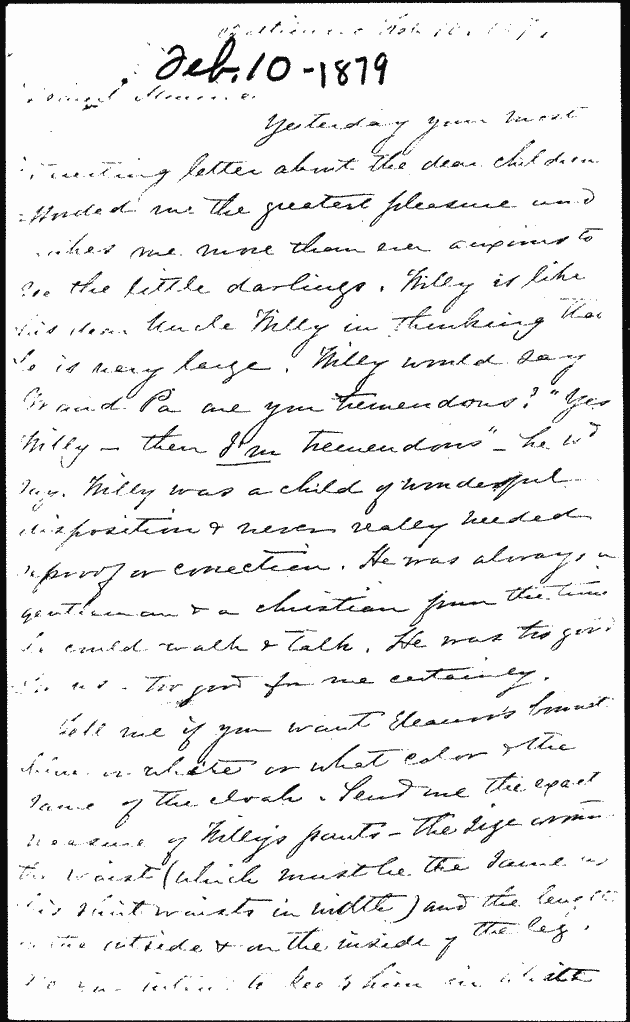 Baltimore Feb 10. 1879
Feb. 10 - 1879
Yesterday your most
interesting letter about the dear children
afforded me the greatest pleasure and
makes me more than ever anxious to
see the little darlings. Willy is like
his dear Uncle Willy in thinking that
he is very large. Willy would say
Grand Pa are you tremendous? "Yes
Willy - then I'm tremendous" - he wd
say. Willy was a child of wonderful
disposition & never really needed
reproof or correction. He was always a
gentleman & a christian from the time
he could walk & talk. He was too good
for us - too good for me certainly.
Tell me if you want Eleanor's bonnet
blue or white or what color & the
same of the cloak. Send me the exact
measure of Willy's pants - the size around
the waist (which must be the same as
his shirt waists in width) and the length
on the outside & on the inside of the leg.
Do you intend to keep him in white